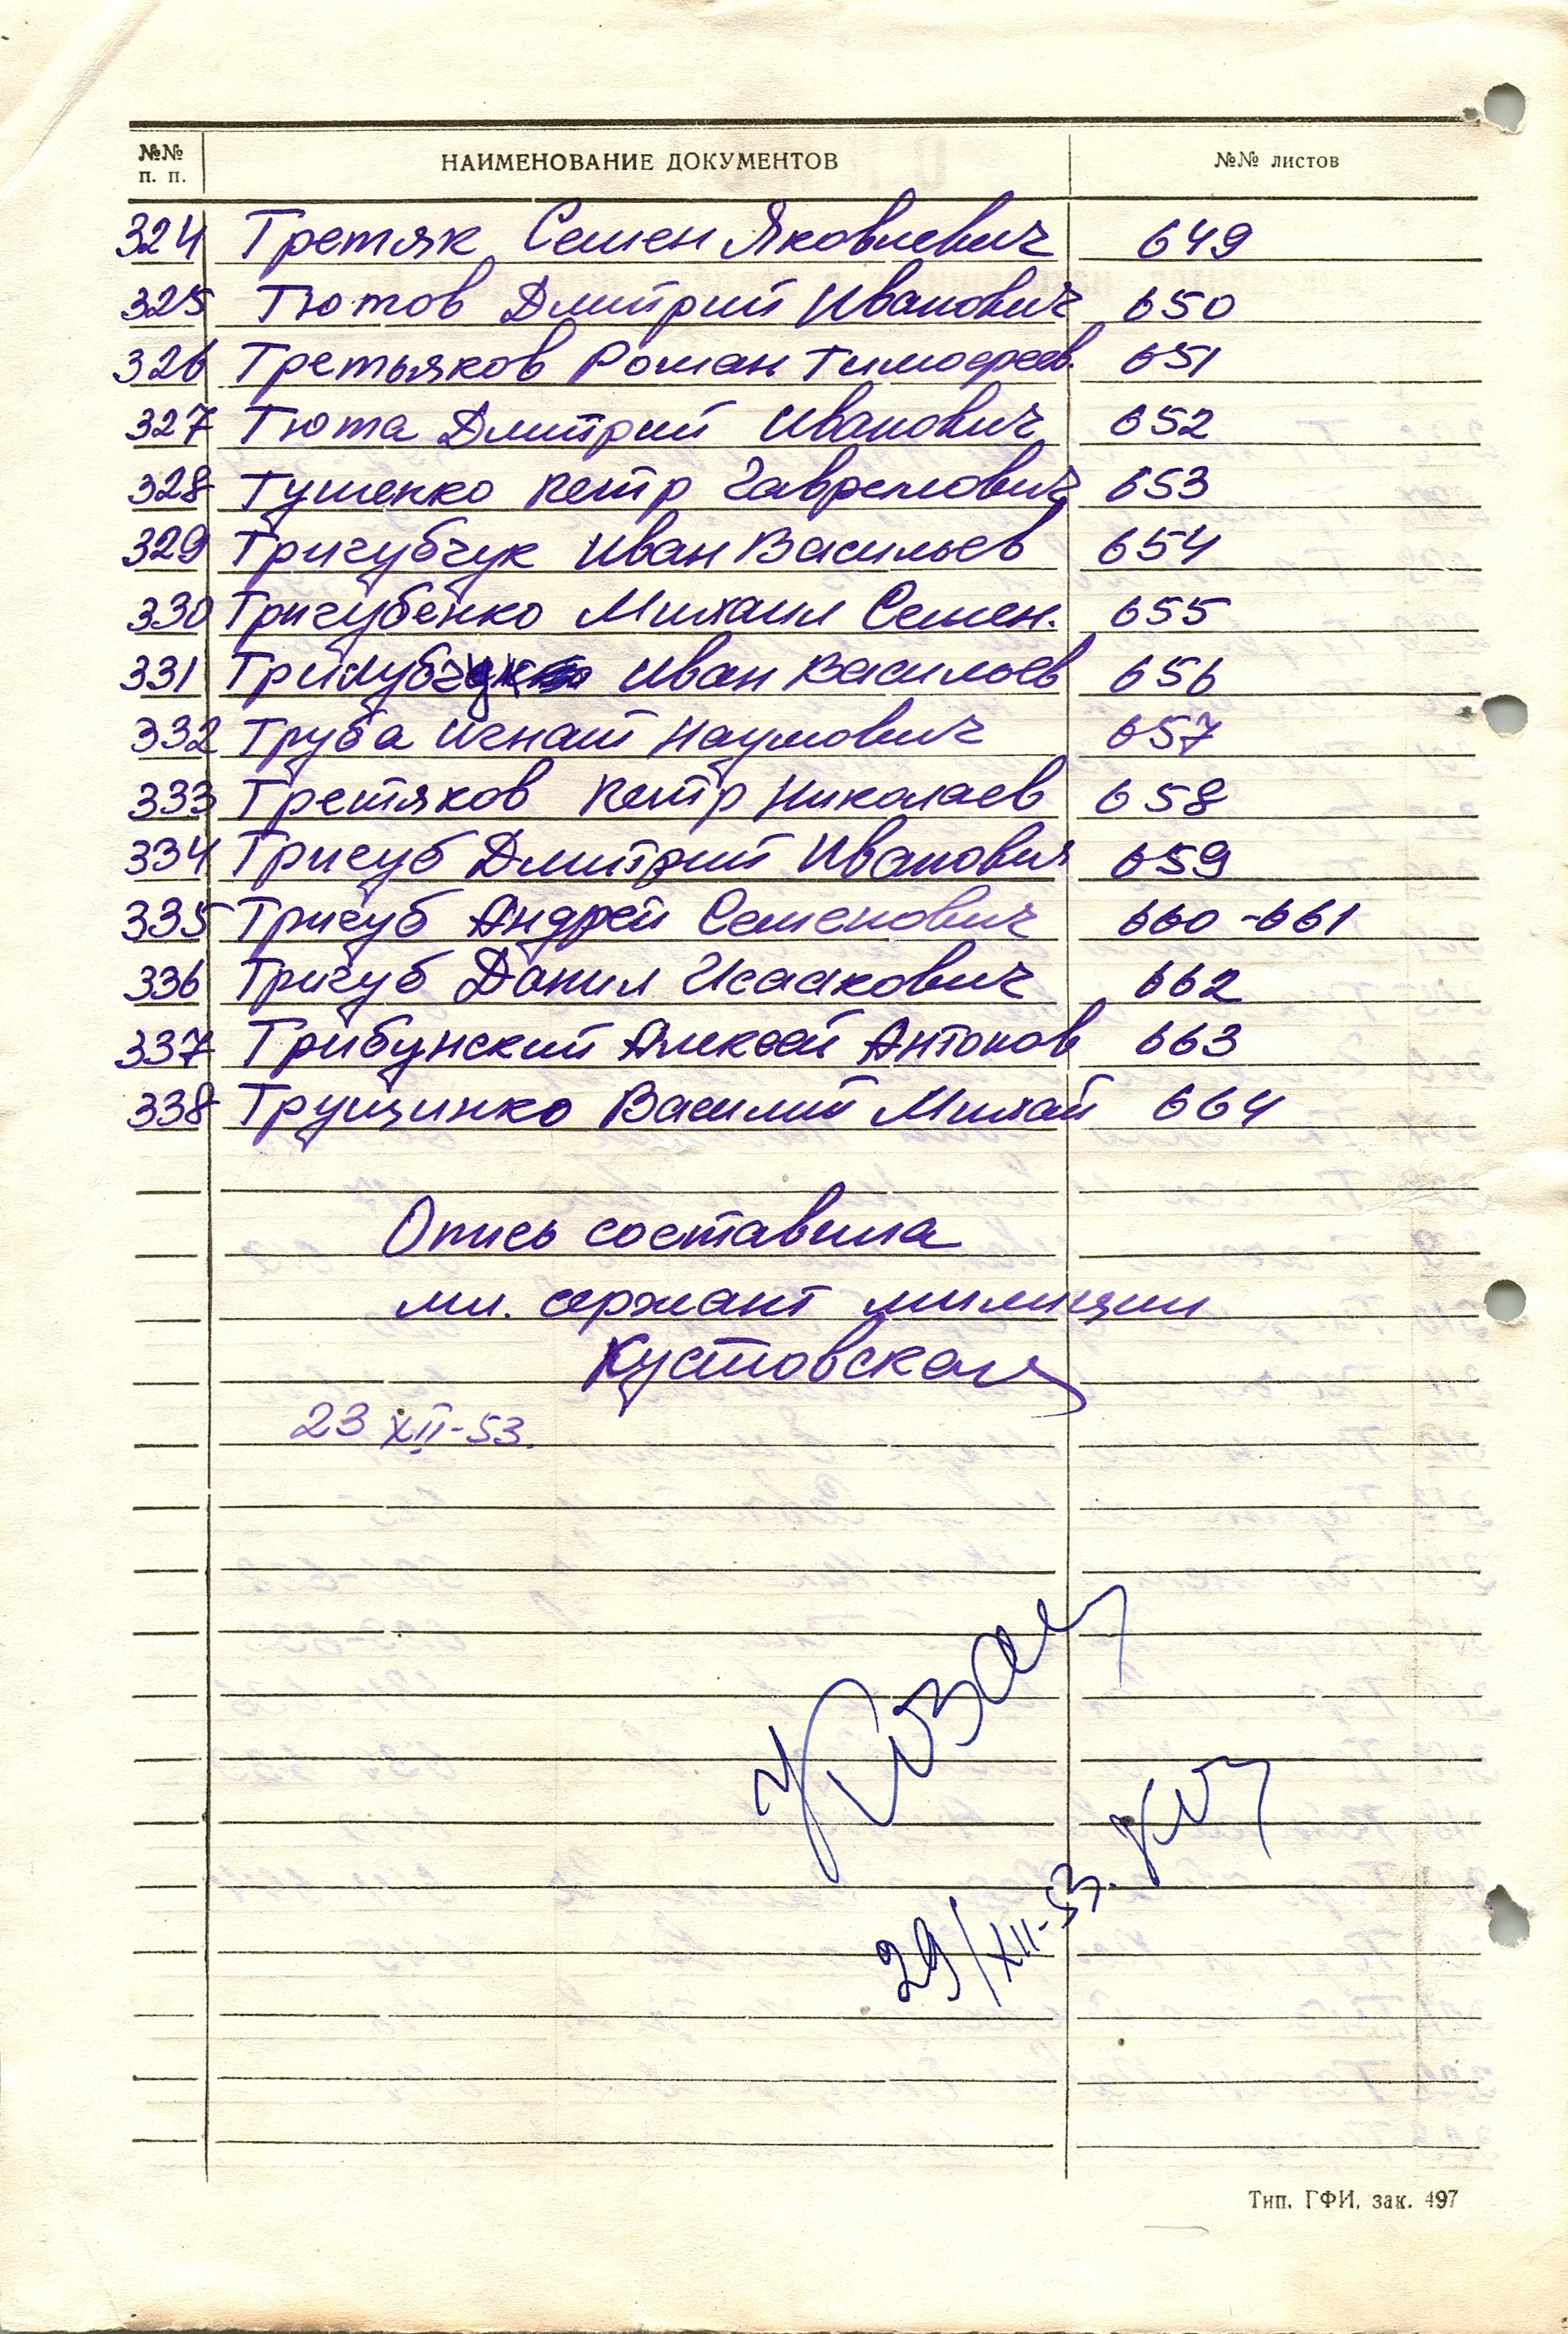 №№ п. п. НАИМЕНОВАНИЕ ДОКУМЕНТОВ №№ листов
324 Третяк Семен Яковлевич 649
325 Тютов Дмитрий Иванович 650
326 Третьяков Роман Тимофеев. 651
327 Тюта Дмитрий Иванович 652
328 Тушенко Петр Гаврилович 653
329 Тригубчук Иван Васильев 654
330 Тригубенко Михаил Семен. 655
331 Иван Васильев 656
332 Труба Игнат Наумович 657
333 Третяков Петр Николаев 658
334 Тригуб Дмитрий Иванович 659
335 Тригуб Андрей Семенович 660-661
336 Тригуб Данил Исаакович 662
337 Трибунский Алексей Антонов 663
338 Трущинко Василий Михай 664
Опись составила
мл. сержант милиции
Кустовская
23 XII-53.
29/XII-53.
Тип. ГФИ, зак. 497